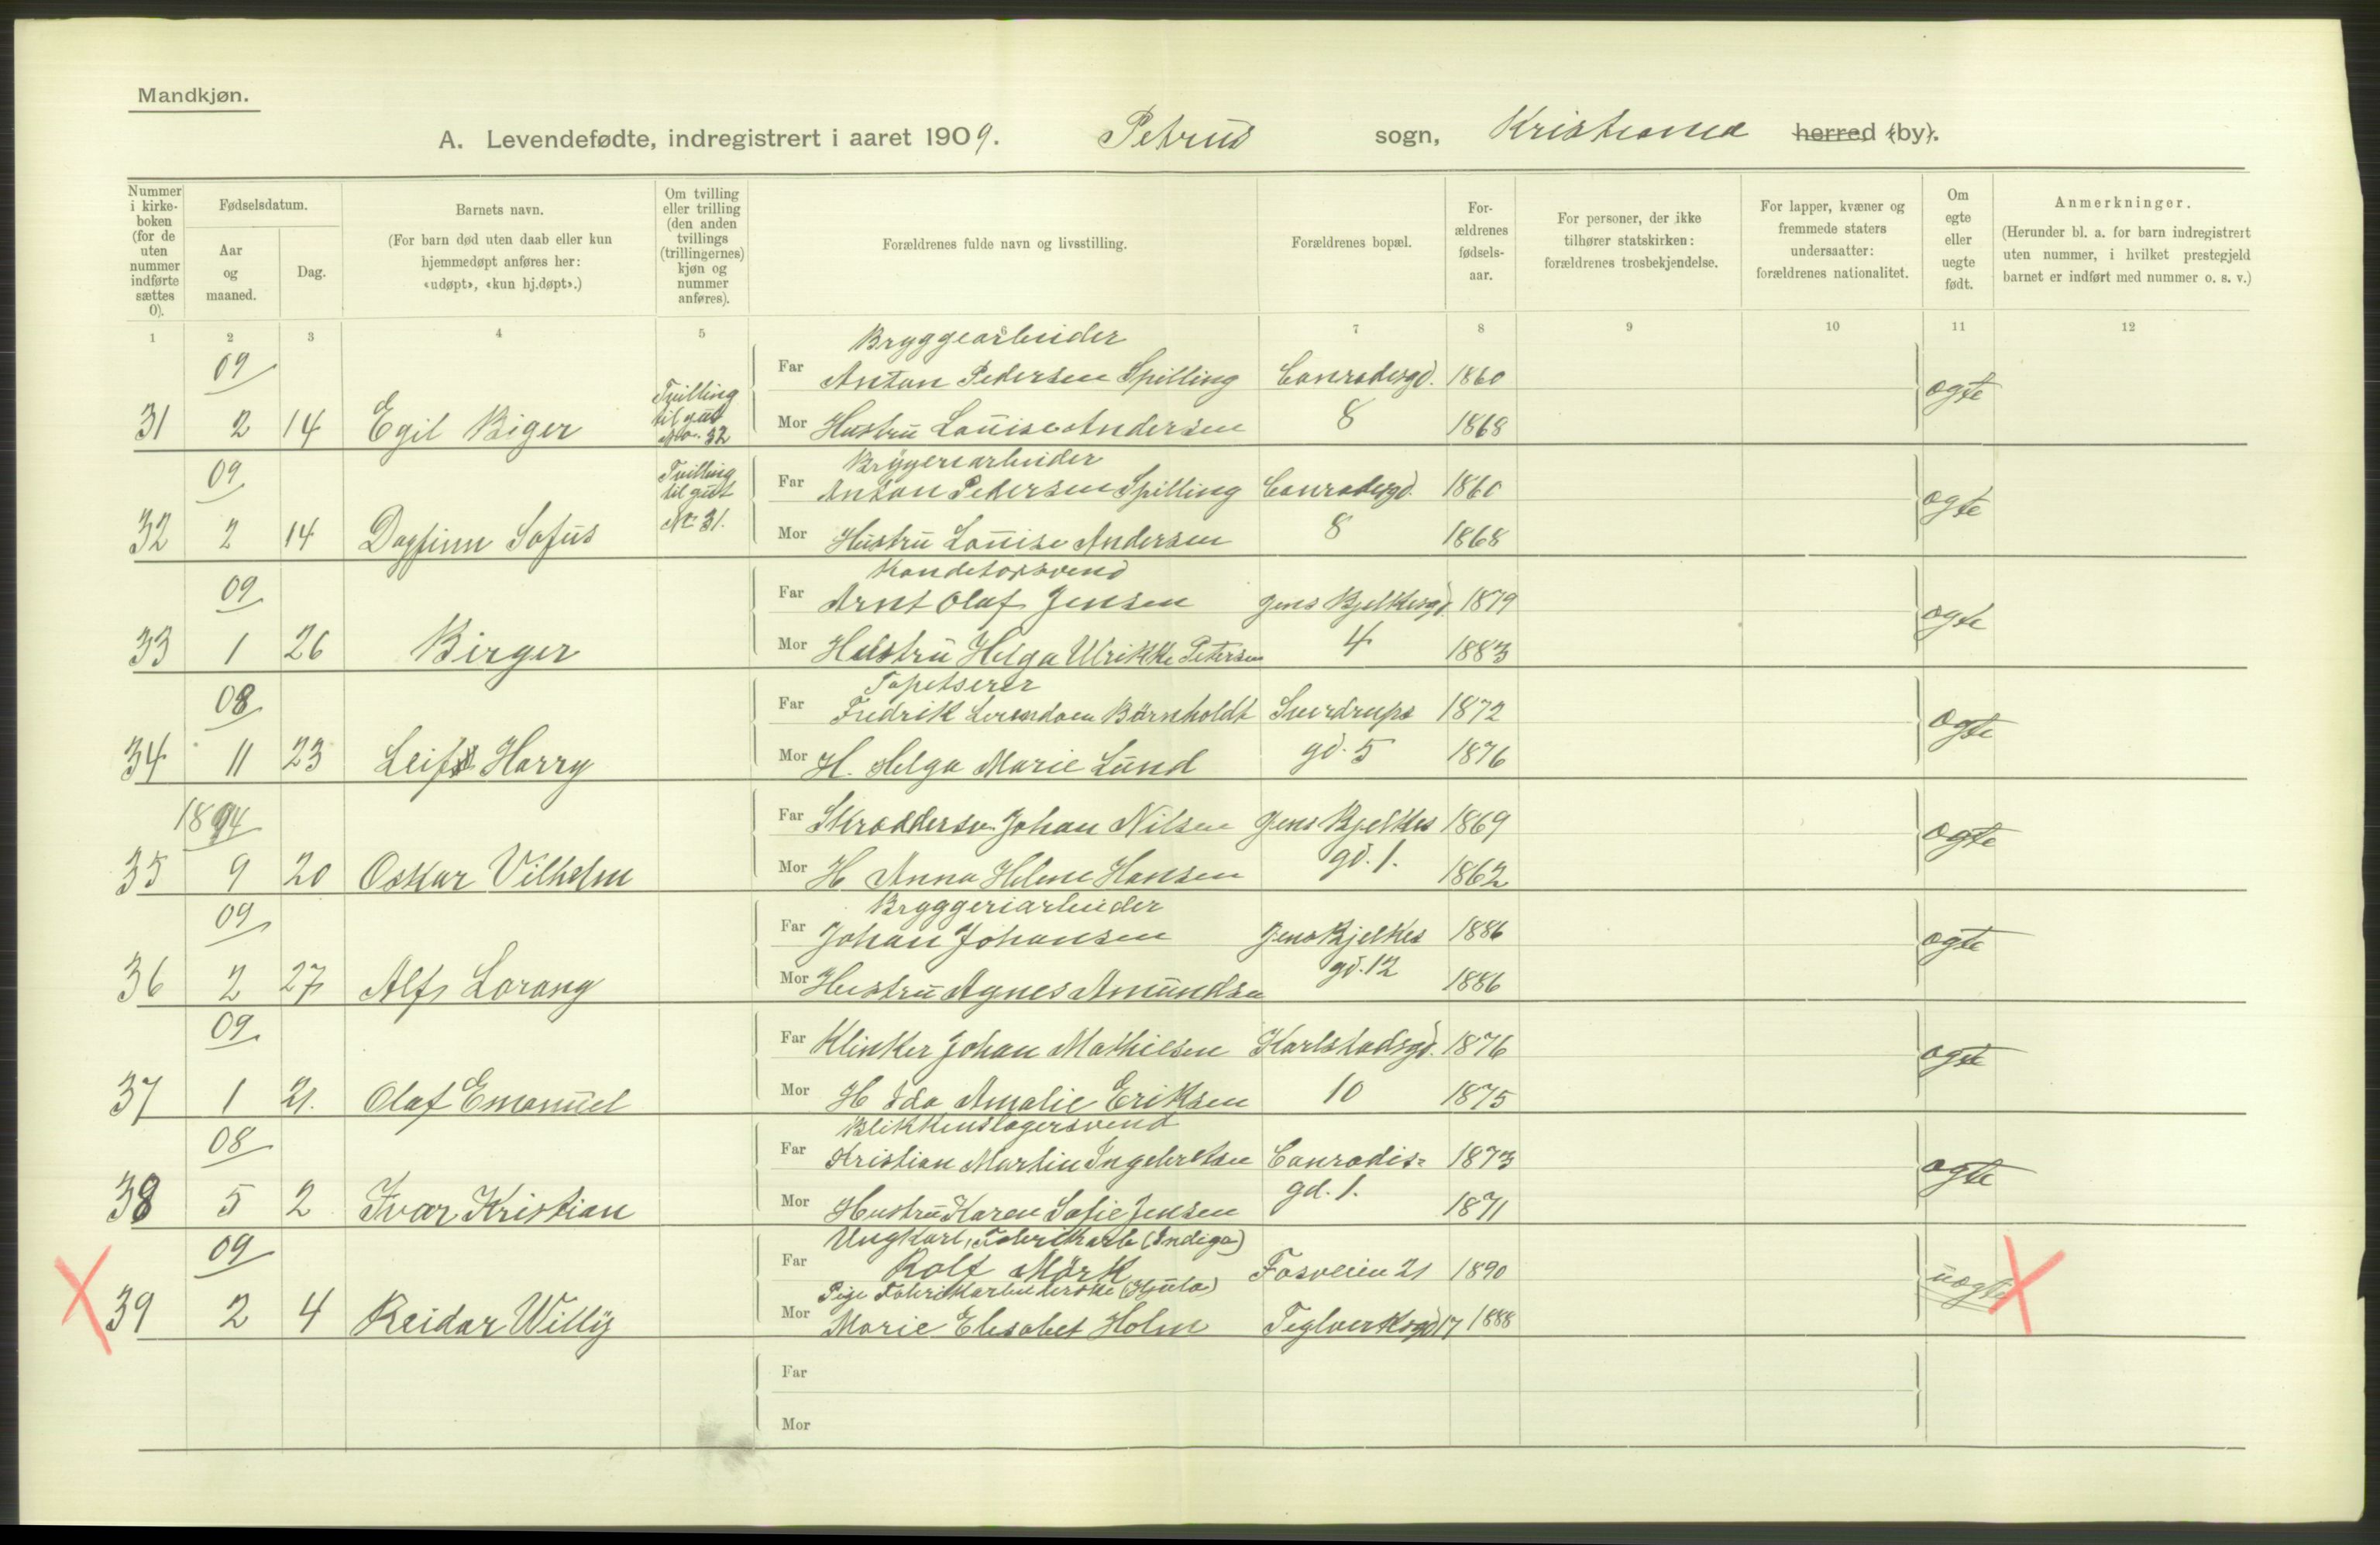 Mandkjøn.
A. Levendefødte, indregistrert i aaret 1909. Petrus sogn, Kristiania herred (by).
Nummer i kirkeboken (for de uten nummer indførte sættes 0).
Fødselsdatum.
Aar og maaned.
Dag.
Barnets navn.
(For barn død uten daab eller kun hjemmedøpt anføres her: «udøpt», «kun hj.døpt».)
Om tvilling eller trilling (den anden tvillings (trillingernes) kjøn og nummer anføres).
Forældrenes fulde navn og livsstilling.
Forældrenes bopæl.
Forældrenes fødselsaar.
For personer, der ikke tilhører statskirken: forældrenes trosbekjendelse.
For lapper, kvæner og fremmede staters undersaatter: forældrenes nationalitet.
Om egte eller uegte født.
Anmerkninger.
(Herunder bl. a. for barn indregistrert uten nummer, i hvilket prestegjeld barnet er indført med nummer o. s. v.)
1 2 3 4 5 6 7 8 9 10 11 12
09 Bryggearbeider
Far Anton Pedersen Spilling Conradisgd. 1860 ægte
31 2 14 Egil Biger Tvilling til gut No. 32 Mor Hustru Louise Andersen 8 1868
09 Bryggeriarbeider
Far Anton Pedersen Spilling Conradisgd. 1860 ægte
32 2 14 Dagfinn Sofus Tvilling til gut No 31. Mor Hustru Louise Andersen 8 1868
09 Konditorsvend
Far Arnt Olaf Jensen Jens Bjelkesgd. 1879 ægte
33 1 26 Birger Mor Hustru Helga Ulrikke Petersen 4 1883
08 Tapetserer
Far Fredrik Börnholdt Sverdrups 1872 ægte
34 11 23 Leif Harry Mor H. Helga Marie Lund gd. 5 1876
1894 Far Skræddersv. Johan Nilsen Jens Bjelkes 1869 ægte
35 9 20 Oskar Vilhelm Mor H Anna Helene Hansen gd. 1. 1862
09 Bryggeriarbeider
Far Johan Johansen Jens Bjelkes 1886 ægte
36 2 27 Alf Lorang Mor Hustru Agnes Amundsen gd. 12 1886
09 Far Klinker Johan Mathisen Karlstadsgd. 1876 ægte
37 1 21. Olaf Emanuel Mor H Ida Amalie Eriksen 10 1875
08 Blikkenslagersvend
Far Kristian Martin Ingebretsen Conradis- 1873 ægte
38 5 2 Ivar Kristian Mor Hustru Karen Sofie Jensen gd. 1. 1871
09 Ungkarl, Fabrikarb (Indigo)
Far Rolf Mörk Fosveien 21 1890 uægte
Pige Fabrikarbeiderske (Hjula)
39 2 4 Reidar Willy Mor Marie Elisabet Holm Teglverksgd 17 1888
Far
Mor